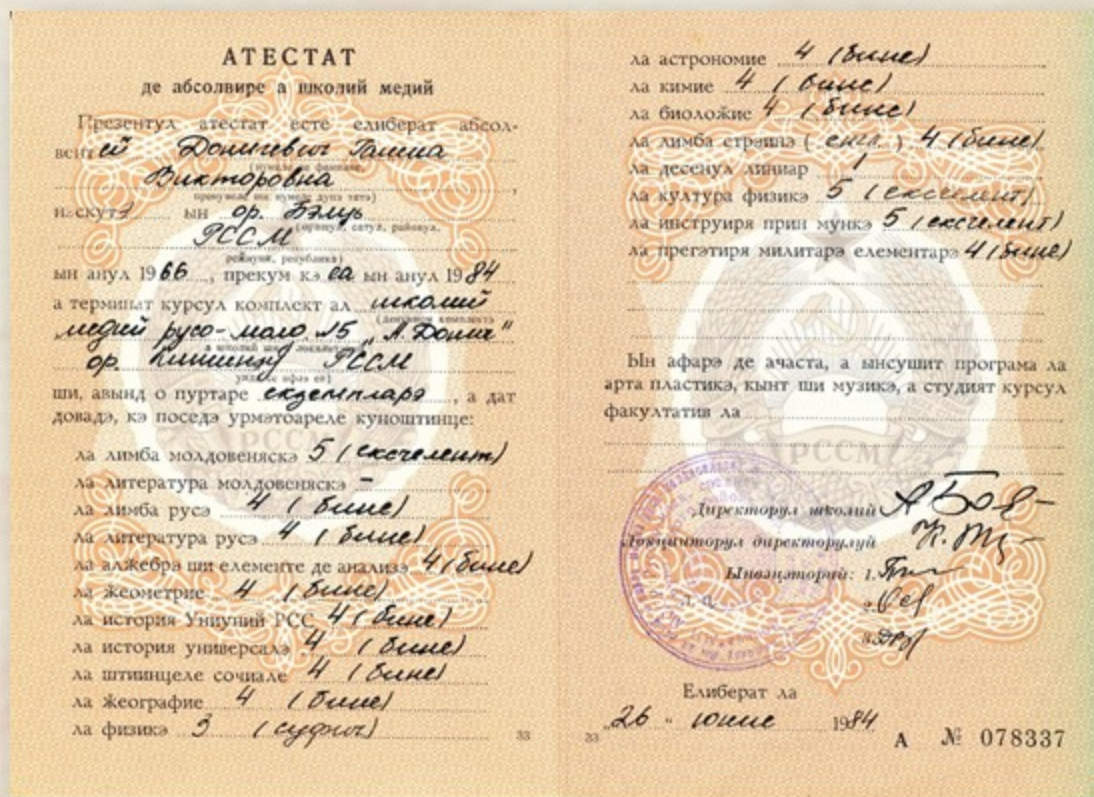 АТЕСТАТ
де абсолвире а школий медий
Презентул атестат есте елиберат абсол-
вент ей Донигевич Галина
(нумеле де фамилие,
Викторовна
пренумеле ши нумеле дупэ татэ)
нэскутэ ын ор. Бэлць
(орашул, сатул, районул,
РССМ
република)
ын анул 1966, прекум кэ еа ын анул 1984
а терминат курсул комплект ал школий
(денумиря комплектэ
медий русо-молд. №5 „А. Донич"
а школий ши локалитатя
ор. Кишинэу РССМ
унде се афлэ еа)
ши, авынд о пуртаре екземпларэ, а дат
довадэ, кэ поседэ урмэтоареле куноштинце:
ла лимба молдовеняскэ 5 (ексчелент)
ла литература молдовеняскэ –
ла лимба русэ 4 (бине)
ла литература русэ 4 (бине)
ла алжебрэ ши елементе де анализэ 4 (бине)
ла жеометрие 4 (бине)
ла история Униуний РСС 4 (бине)
ла история универсалэ 4 (бине)
ла штиинцеле сочиале 4 (бине)
ла жеографие 4 (бине)
ла физикэ 3 (суфич)
33
РССМ
ла астрономие 4 (бине)
ла кимие 4 (бине)
ла биоложие 4 (бине)
ла лимба стрэинэ (енгл.) 4 (бине)
ла десенул линиар /
ла културa физикэ 5 (ексчелент)
ла инструиря прин мункэ 5 (ексчелент)
ла прегэтиря милитарэ елементарэ 4 (бине)
Ын афарэ де ачаста, а ынсушит програма ла
арта пластикэ, кынт ши музикэ, а студият курсул
факултатив ла
РССМ
Директорул школий
Локцииторул директорулуй
Ынвэцэторий: 1.
2.
3.
Л. П.
Елиберат ла
„26" юние 1984
33
А № 078337